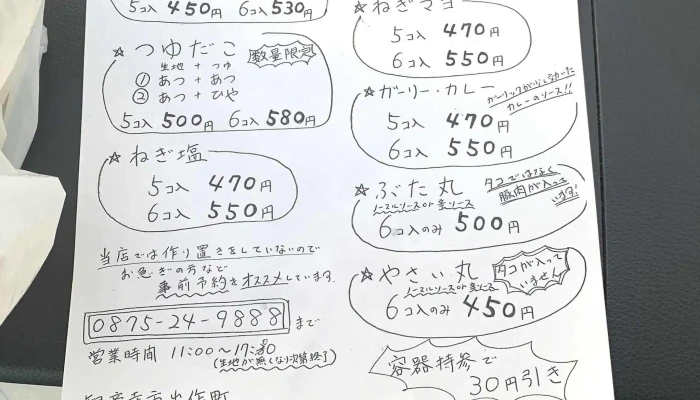 5コ入 450円 6コ入 530円
☆ つゆだこ 数量限定
生地 + つゆ
① あつ + あつ
② あつ + ひや
5コ入 500円 6コ入 580円
☆ ねぎ塩
5コ入 470円
6コ入 550円
当店では作り置きをしていないので
お急ぎの方など
事前予約をオススメしています。
0875-24-9888 まで
営業時間 11:00〜17:30
(生地が無くなり次第終了)
☆ ねぎマヨ
5コ入 470円
6コ入 550円
☆ ガーリー・カレー
カレーのソース!!
5コ入 470円
6コ入 550円
☆ ぶた丸
タコではなく
豚肉が入って
います!
ノーマルソース or 辛ソース
6コ入のみ 500円
☆ やさい丸
タコが入って
いません
ノーマルソース or 辛ソース
6コ入のみ 450円
容器持参で
30円引き